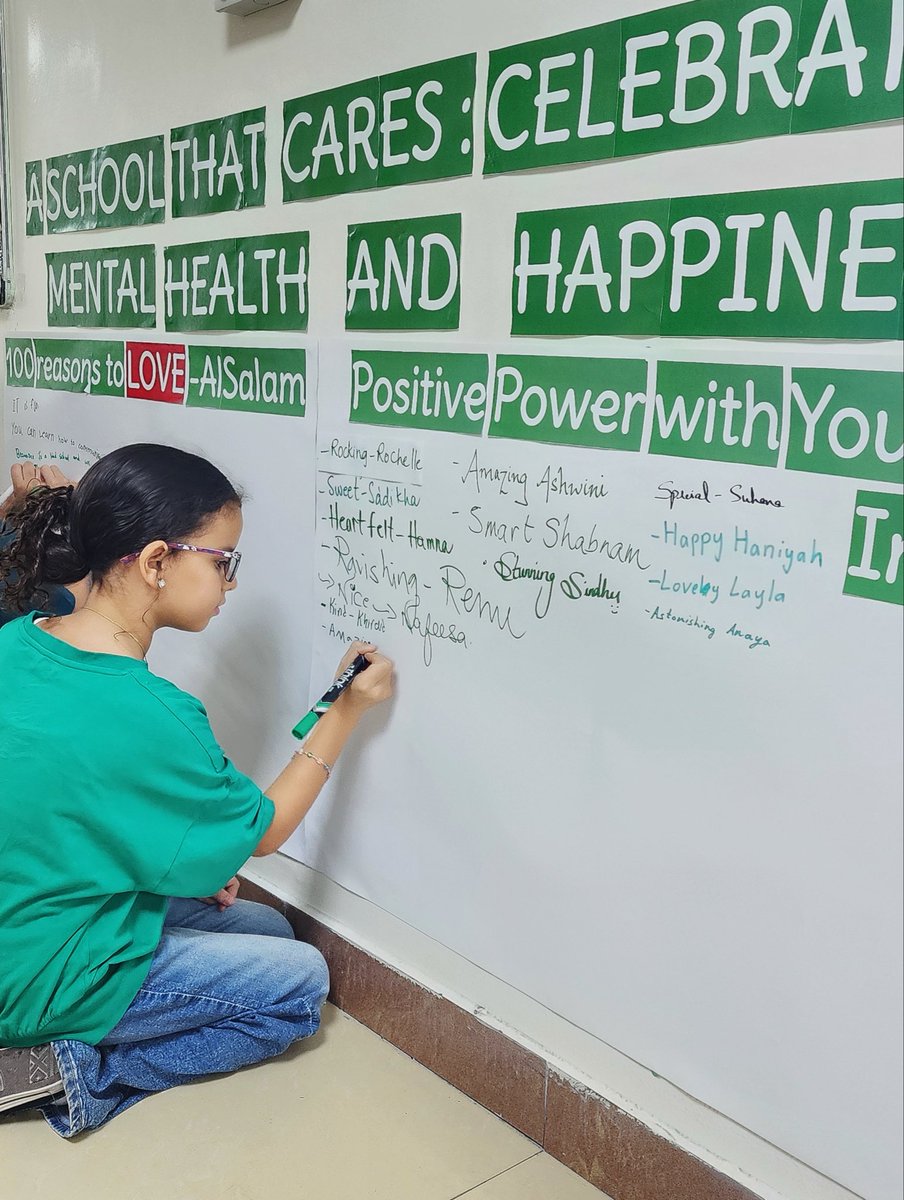 A SCHOOL THAT CARES: CELEBRAT
MENTAL HEALTH AND HAPPINE
100 reasons to LOVE - AlSalam
Positive Power with You
In
It is
You can learn how to
Because is a
- Rocking - Rochelle
- Sweet - Sadikha
- Heartfelt - Hamna
- Ravishing - Renu
→ Nice → Nafeesa
- Kind - Khirdit
- Amazi
- Amazing Ashwini
- Smart Shabnam
Stunning Sindhu
Special - Suhana
- Happy Haniyah
- Lovely Layla
- Astonishing Anaya